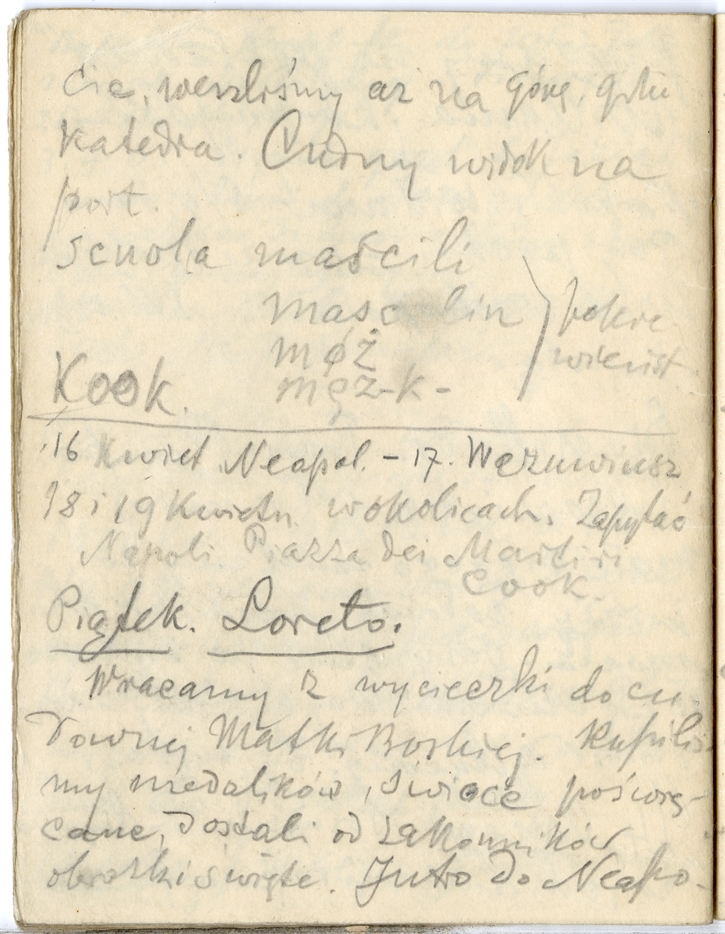 cie, weszliśmy aż na górę, gdzie
Katedra. Cudny widok na
port.
scuola maścili
mascolin
móż
męż-k-
pokre
wieńst.
Kook.
16 Kwiet Neapol. - 17. Wezuwiusz
18 i 19 Kwietn w okolicach. Zapytać
Napoli Piazza dei Martiri
Cook.
Piątek. Loreto.
Wracamy z wycieczki do cu-
downej Matki Boskiej. Kupiliś
my medalików, świece poświę-
cane, dostali od zakonników
obrazki święte. Jutro do Neapo-